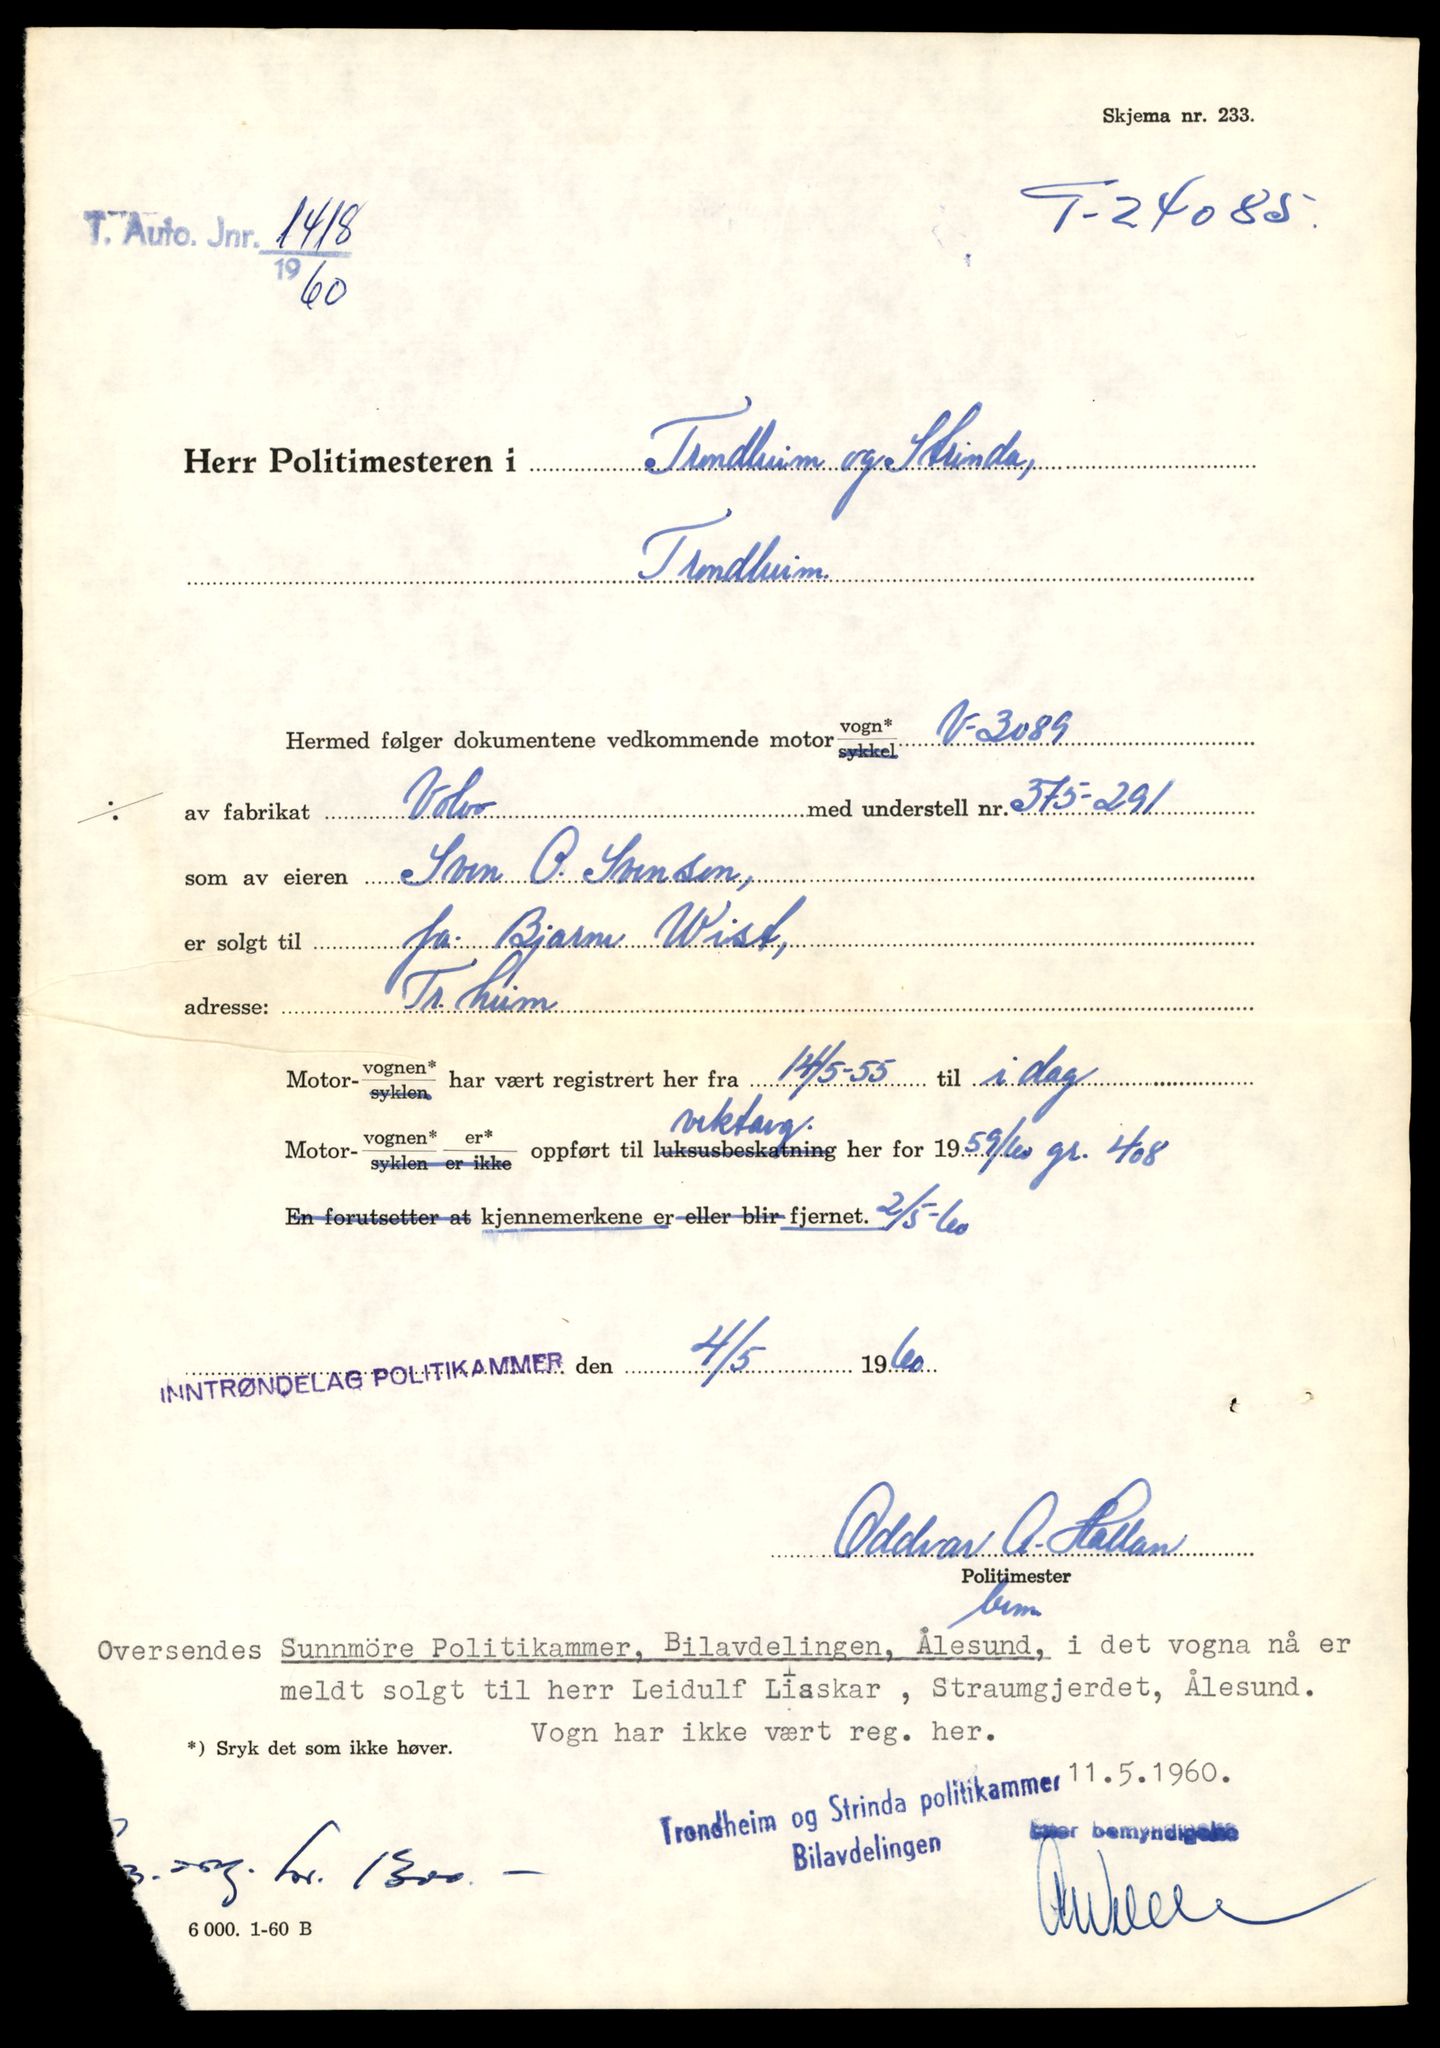 Skjema nr. 233.
T-24085.
T. Auto. Jnr. 1418
19 60
Herr Politimesteren i Trondheim og Strinda,
Trondheim.
Hermed følger dokumentene vedkommende motor vogn* sykkel V-3089
av fabrikat Volvo med understell nr. 375-291
som av eieren Sven O. Svensen,
er solgt til fa. Bjarne Wist,
adresse: Tr.heim
Motor- vognen* syklen har vært registrert her fra 14/5-55 til i dag
vektavg.
Motor- vognen* syklen er* er ikke oppført til luksusbeskatning her for 1959/60 gr. 408
En forutsetter at kjennemerkene er eller blir fjernet. 2/5-60
INNTRØNDELAG POLITIKAMMER den 4/5 1960
Oddvar A. Hallan
Politimester
bem.
Oversendes Sunnmöre Politikammer, Bilavdelingen, Ålesund, i det vogna nå er
meldt solgt til herr Leidulf Liaskar , Straumgjerdet, Ålesund.
Vogn har ikke vært reg. her.
*) Sryk det som ikke høver.
11.5.1960.
Trondheim og Strinda politikammer
Bilavdelingen
etter bemyndigelse
kr. 1300. -
6 000. 1-60 B